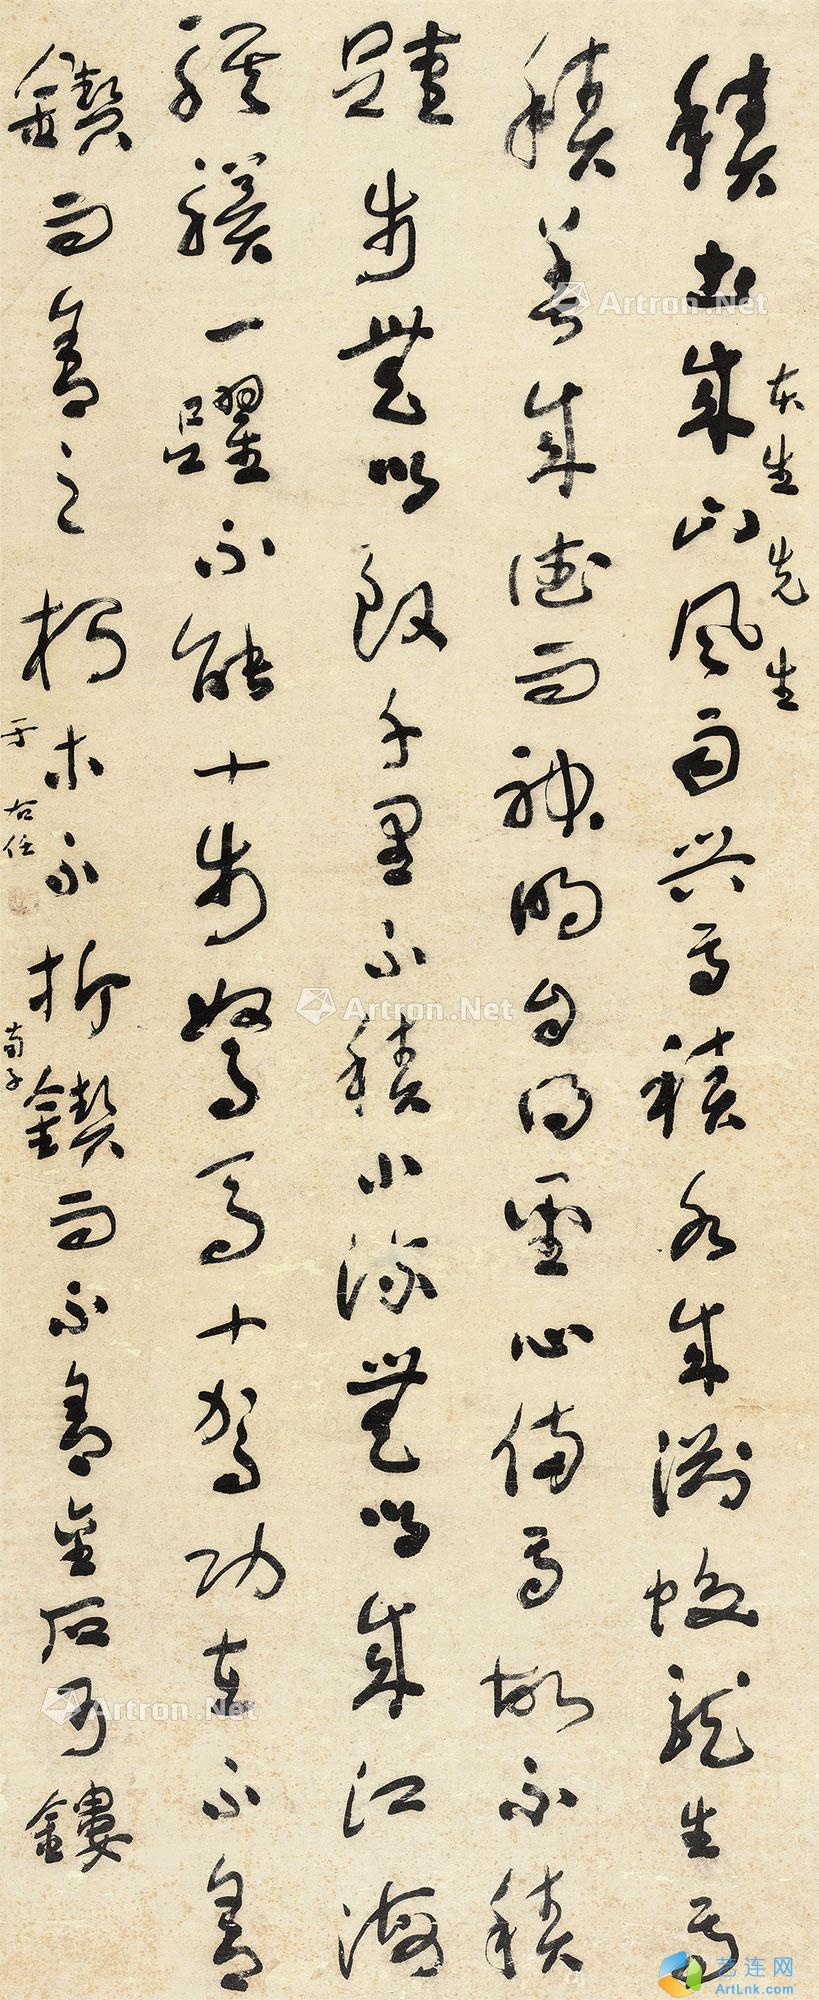 东生先生
積土成山風雨興焉積水成淵蛟龍生焉
積善成德而神明自得聖心備焉故不積
跬步無以致千里不積小流無以成江海
騏驥一躍不能十步駑馬十駕功在不舍
鍥而舍之朽木不折鍥而不舍金石可鏤
荀子
于右任
Artron.Net
Artron.Net
Artron.Net
艺连网
ArtLnk.com